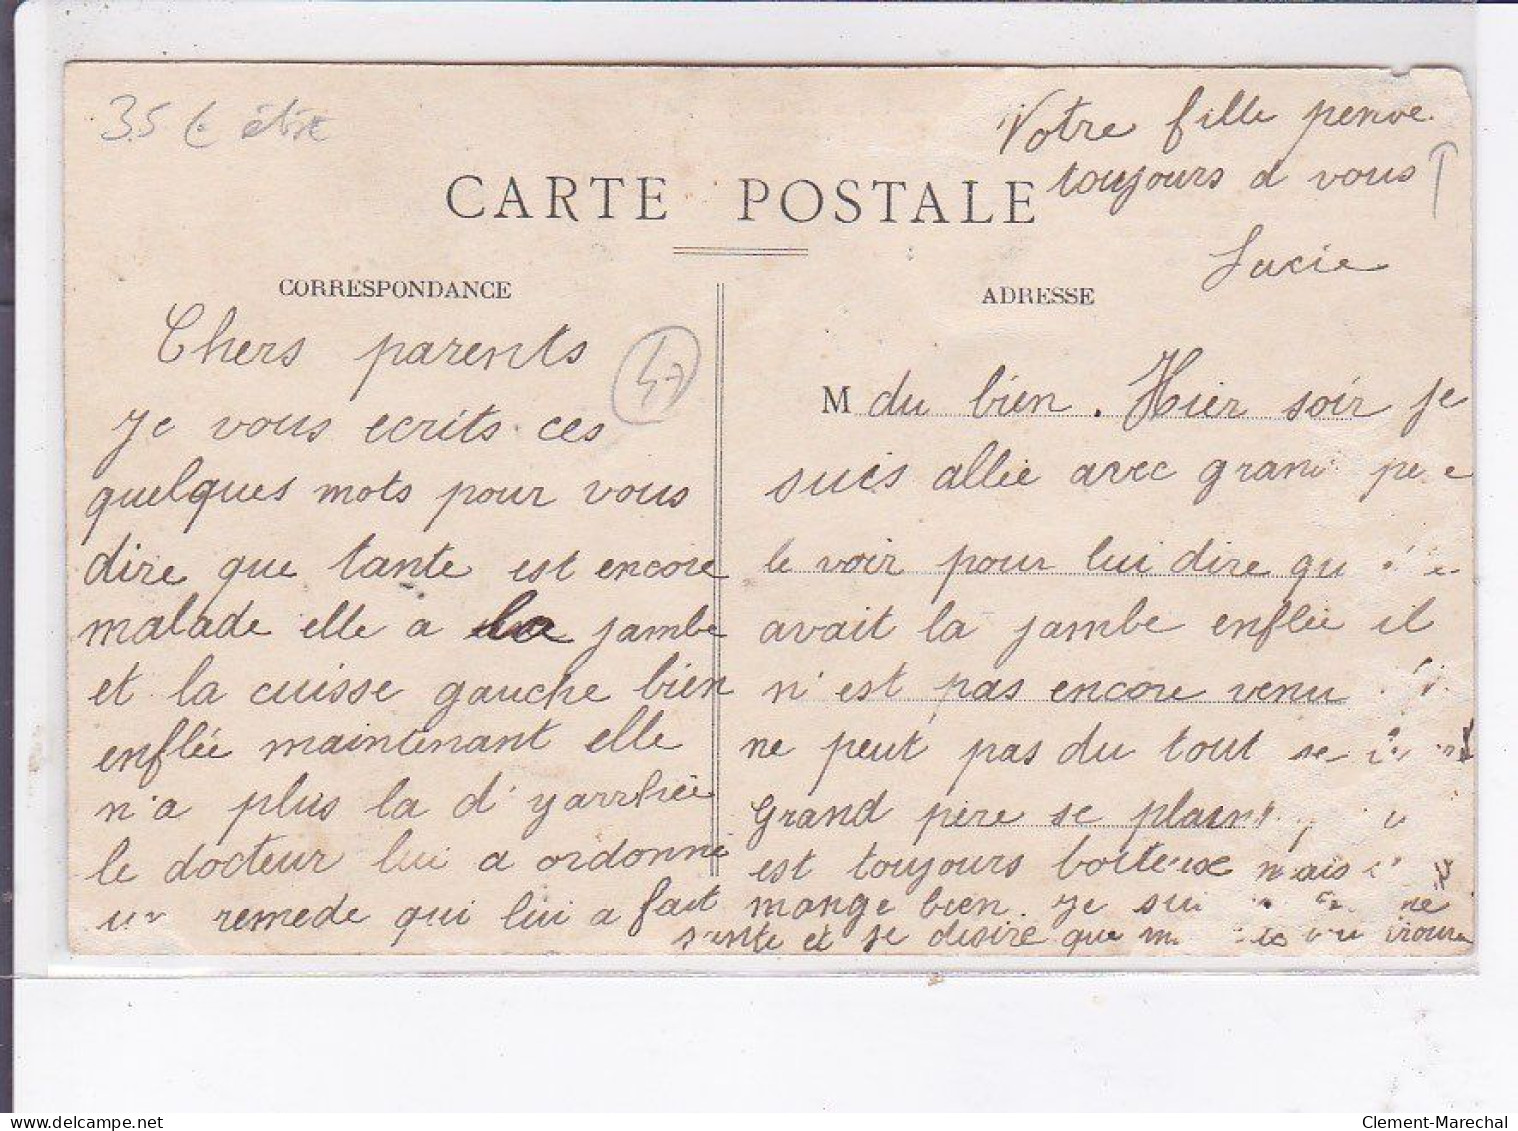 35 €
Votre fille penve
toujours a vous
Lucie
CARTE POSTALE
CORRESPONDANCE
ADRESSE
Chers parents
47
je vous ecrits ces
quelques mots pour vous
dire que tante est encore
malade elle a la jambe
et la cuisse gauche bien
enflée maintenant elle
n'a plus la d'yarrhée
le docteur lui a ordonné
un remede qui lui a fait
M du bien. Hier soir je
suis allée avec grand pere
le voir pour lui dire qu
avait la jambe enflée il
n'est pas encore venu
ne peut pas du tout se
Grand père se plaint
est toujours boiteux mais
mange bien. je suis
sante et je desire que
Clement-Marechal